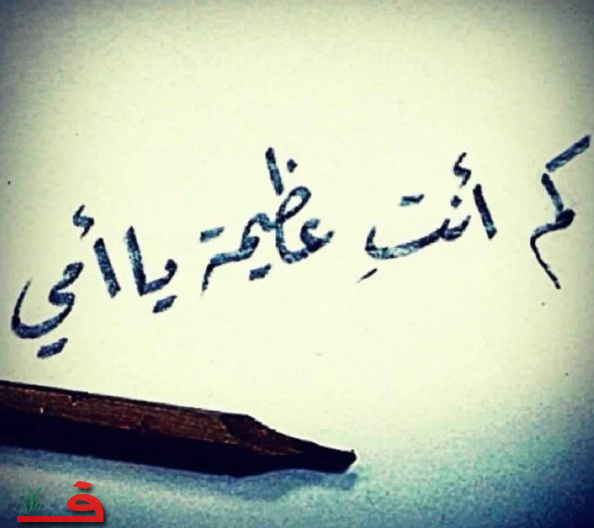 كم أنتِ عظيمة يا أمي
ف